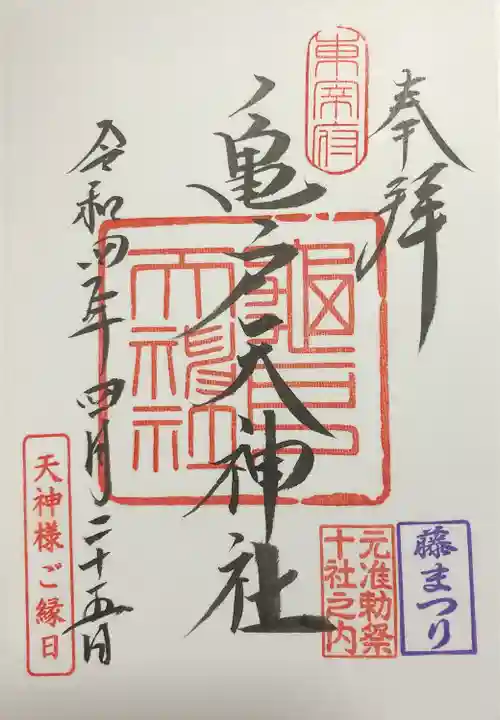 奉拝
東宰府
亀戸天神社
令和四年 四月二十五日
天神様ご縁日
元准勅祭
十社之内
藤まつり